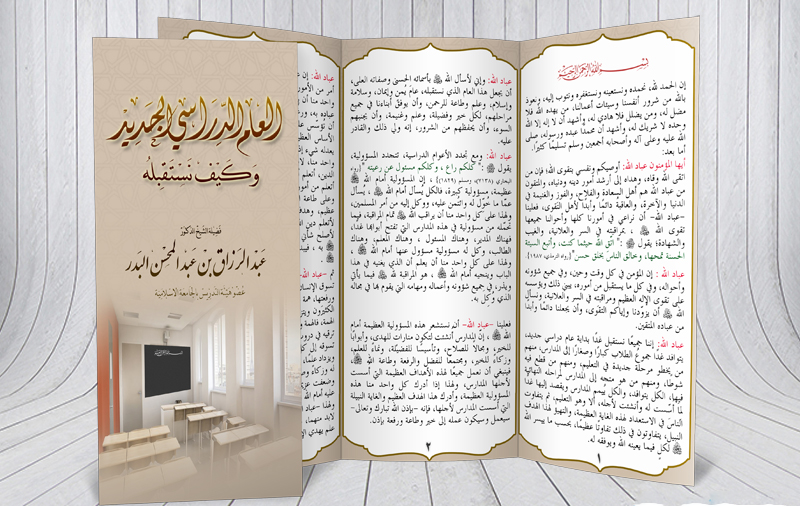 العام الدراسي الجديد
وكيف نستقبله
فضيلة الشيخ الدكتور
عبد الرزاق بن عبد المحسن البدر
عضو هيئة التدريس بالجامعة الإسلامية
بسم الله الرحمن الرحيم
إن الحمد لله، نحمده ونستعينه ونستغفره ونتوب إليه، ونعوذ
بالله من شرور أنفسنا وسيئات أعمالنا، من يهده الله فلا
مضل له، ومن يضلل فلا هادي له، وأشهد أن لا إله إلا الله
وحده لا شريك له، وأشهد أن محمدا عبده ورسوله، صلى
الله عليه وعلى آله وأصحابه أجمعين وسلم تسليمًا كثيرًا.
أما بعد:
أيها المؤمنون عباد الله: أوصيكم ونفسي بتقوى الله؛ فإن من
اتقى الله وقاه، وهداه إلى أرشد أمور دينه ودنياه، والمتقون
من عباد الله هم أهل السعادة والفلاح، والفوز والغنيمة في
الدنيا والآخرة، والعاقبة دائمًا وأبدًا لأهل التقوى، فعلينا
-عباد الله- أن نراعي في أمورنا كلها وأحوالنا جميعها
تقوى الله ﷻ، بمراقبته في السر والعلانية، والغيب
والشهادة؛ يقول ﷺ: "اتق الله حيثما كنت، وأتبع السيئة
الحسنة تمحها، وخالق الناس بخلق حسن" [رواه الترمذي: ١٩٨٧].
عباد الله: إن المؤمن في كل وقت وحين، وفي جميع شؤونه
وأحواله، وفي كل ما يستقبل من أموره، يبني ذلك ويؤسسه
على تقوى الإله العظيم ومراقبته في السر والعلانية، ونسأل
الله ﷻ أن يزودنا وإياكم التقوى، وأن يجعلنا دائمًا وأبدًا
من عباده المتقين.
عباد الله: إننا جميعًا نستقبل غدًا بداية عام دراسي جديد،
يتوافد غدًا جموع الطلاب كبارًا وصغارًا إلى المدارس، منهم
من يخطو مرحلة جديدة في التعليم، ومنهم من قطع فيه
شوطا، ومنهم من هو متجه إلى المدارس ليبدأ
فيها، الكل يتوافد، والكل ييمم المدارس ويقصد إليها غدًا
لما أسست له وأنشئت لأجله، ألا وهو التعليم، ثم يتفاوت
الناس في الاستعداد لهذه الغاية العظيمة، والتهيؤ لهذا الهدف
النبيل، يتفاوتون في ذلك تفاوتًا عظيمًا، بحسب ما ييسر الله
ﷻ لكل فيما يعينه الله ويوفقه له.
١
عباد الله: وإني لأسأل الله ﷻ بأسمائه الحسنى وصفاته العلى،
أن يجعل هذا العام الذي نستقبله، عام يُمن وإيمان، وسلامة
وإسلام، وعلم وطاعة للرحمن، وأن يوفق أبناءنا في جميع
مراحلهم، لكل خير وفضيلة، وعلم وغنيمة، وأن يجنبهم
السوء، وأن يحفظهم من الشرور، إنه ولي ذلك والقادر
عليه.
عباد الله: ومع تجدد الأعوام الدراسية، تتجدد المسؤولية،
يقول ﷺ: "كلكم راع، وكلكم مسئول عن رعيته" [رواه
البخاري (٧١٣٨)، ومسلم (١٨٢٩)]، إن المسؤولية أمام الله ﷻ
عظيمة، مسؤولية كبيرة، فالكل يُسأل أمام الله ﷻ، يُسأل
عمّا خُوّل له واؤتمن عليه، ووكل إليه من أمر المسلمين،
ولهذا على كل واحد منا أن يراقب الله ﷻ تمام المراقبة، فيما
تحمّله من مسؤولية في هذه المدارس التي تفتح أبوابها غدا،
فهناك المدير، وهناك المسئول، وهناك المعلم، وهناك
الطالب، وكل له مسؤولية مسئول عنها أمام الله ﷻ،
ولهذا على كل واحد منا أن يعلم أن الذي يعينه في هذا
الباب وينجيه أمام الله ﷻ، هو المراقبة لله ﷻ فيما يأتي
ويذر، في جميع شؤونه وأعماله ومهامه التي يقوم بها في مجاله
الذي وكل به.
فعلينا -عباد الله- أن نستشعر هذه المسؤولية العظيمة أمام
الله ﷻ، إن المدارس أنشئت لتكون منارات للهدى، وأبوابًا
للخير، ومجالا للصلاح، وتأسيسًا للفضيلة، ونماءً للعلم،
وزكاءً للخير، ومجتمعًا للفضل والرفعة وطاعة الله ﷻ،
فينبغي أن نعمل جميعًا لهذه الأهداف العظيمة التي أسست
لأجلها المدارس، ولهذا إذا أدرك كل واحد منا هذه
المسؤولية العظيمة، وأدرك هذا الهدف العظيم والغاية النبيلة
التي أسست المدارس لأجلها، فإنه -بإذن الله تبارك وتعالى-
سيعمل وسيكون عمله إلى خير وطاعة ورفعة بإذن.
٢